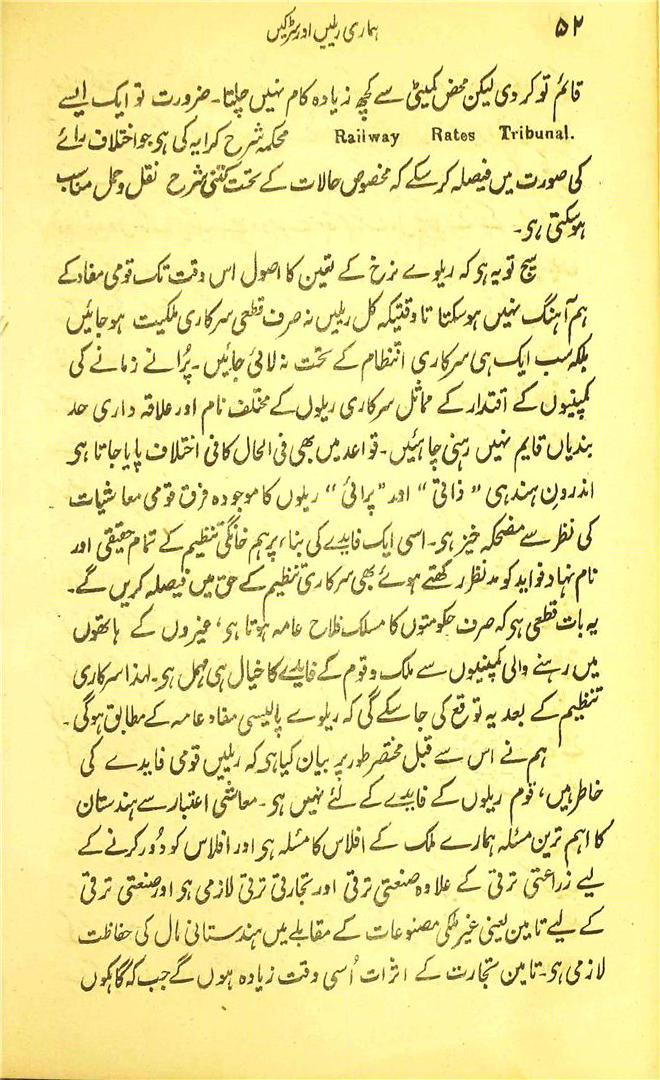 ۵۲
ہماری ریلیں اور سڑکیں
قائم تو کر دی لیکن محض کمیٹی سے کچھ زیادہ کام نہیں چلتا۔ ضرورت تو ایک ایسے
محکمہ شرح کرایہ کی ہی جو اختلاف رائے Railway Rates Tribunal.
کی صورت میں فیصلہ کر سکے کہ مخصوص حالات کے تحت کتنی شرح نقل و حمل مناسب
ہو سکتی ہی۔
سچ تو یہ ہی کہ ریلوے نرخ کے تعین کا اصول اس وقت تک قومی مفاد کے
ہم آہنگ نہیں ہو سکتا تا وقتیکہ کل ریلیں نہ صرف قطعی سرکاری ملکیت ہو جائیں
بلکہ سب ایک ہی سرکاری انتظام کے تحت نہ لائی جائیں۔ پُرانے زمانے کی
کمپنیوں کے اقتدار کے مماثل سرکاری ریلوں کے مختلف نام اور علاقہ داری حد
بندیاں قایم نہیں رہنی چاہئیں۔ قواعد میں بھی فی الحال کافی اختلاف پایا جاتا ہی
اندرونِ ہند ہی ”ذاتی“ اور ”پرائی“ ریلوں کا موجودہ فرق قومی معاشیات
کی نظر سے مضحکہ خیز ہی۔ اسی ایک فایدے کی بناء پر ہم خانگی تنظیم کے تمام حقیقی اور
نام نہاد فواید کو مد نظر رکھتے ہوئے بھی سرکاری تنظیم کے حق میں فیصلہ کریں گے۔
یہ بات قطعی ہی کہ صرف حکومتوں کا مسلک فلاح عامہ ہوتا ہی، غیروں کے ہاتھوں
میں رہنے والی کمپنیوں سے ملک و قوم کے فایدے کا خیال ہی مہمل ہی۔ لہذا سرکاری
تنظیم کے بعد یہ توقع کی جا سکے گی کہ ریلوے پالیسی مفاد عامہ کے مطابق ہوگی۔
ہم نے اس سے قبل مختصر طور پر بیان کیا ہی کہ ریلیں قومی فایدے کی
خاطر ہیں، قوم ریلوں کے فایدے کے لئے نہیں ہی۔ معاشی اعتبار سے ہندستان
کا اہم ترین مسئلہ ہمارے ملک کے افلاس کا مسئلہ ہی اور افلاس کو دُور کرنے کے
لیے زراعتی ترقی کے علاوہ صنعتی ترقی اور تجارتی ترقی لازمی ہی اور صنعتی ترقی
کے لیے تامین یعنی غیر ملکی مصنوعات کے مقابلے میں ہندستانی مال کی حفاظت
لازمی ہی۔ تامین تجارت کے اثرات اُسی وقت زیادہ ہوں گے جب کہ گاہکوں